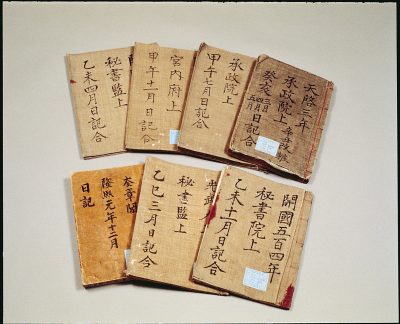 天啓三年
承政院上
癸亥 三月 四月 五月 日記合
承政院上
甲午七月日記合
宮內府上
甲午十一月日記合
秘書監上
乙未四月日記合
開國五百四年
秘書院上
乙未十一月日記合
光武
秘書監上
乙巳三月日記合
奎章閣
隆熙元年十二月
日記